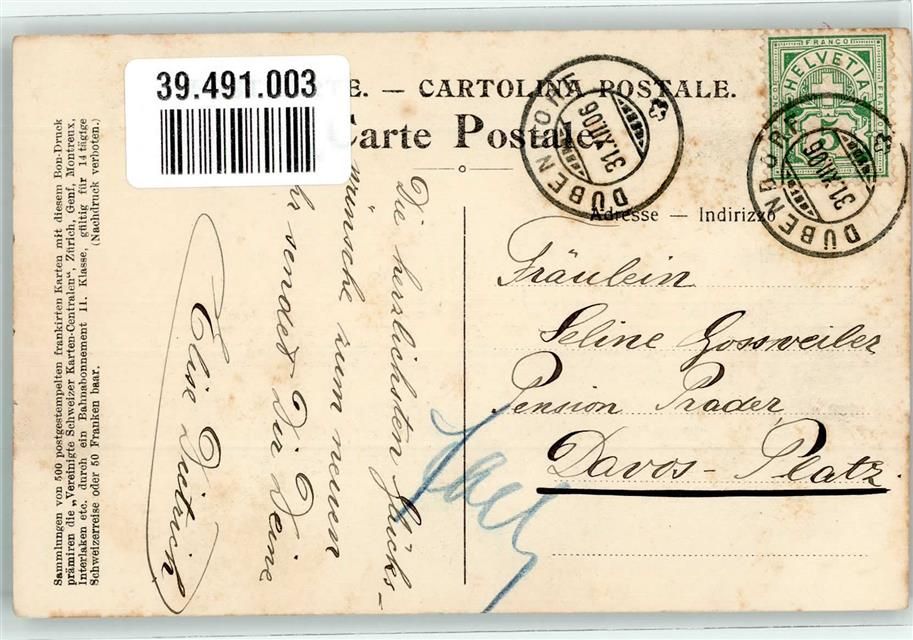 39.491.003
TE. — CARTOLINA POSTALE.
Carte Postale.
Adresse — Indirizzo
FRANCO
HELVETIA
5
DÜBENDORF
31.XII.06
DÜBENDORF
31.XII.06
Fräulein
Seline Gossweiler
Pension Prader
Davos-Platz.
Die herzlichsten Glücks-
wünsche zum neuen
hr sendet Dir Deine
Elise Dietrich
Sammlungen von 500 postgestempelten frankirten Karten mit diesem Bon-Druck
prämiren die „Vereinigte Schweizer Karten-Centralen", Zürich, Genf, Montreux,
Interlaken etc. durch ein Bahnabonnement II. Klasse, gültig für 14 tägige
Schweizerreise oder 50 Franken baar. (Nachdruck verboten.)